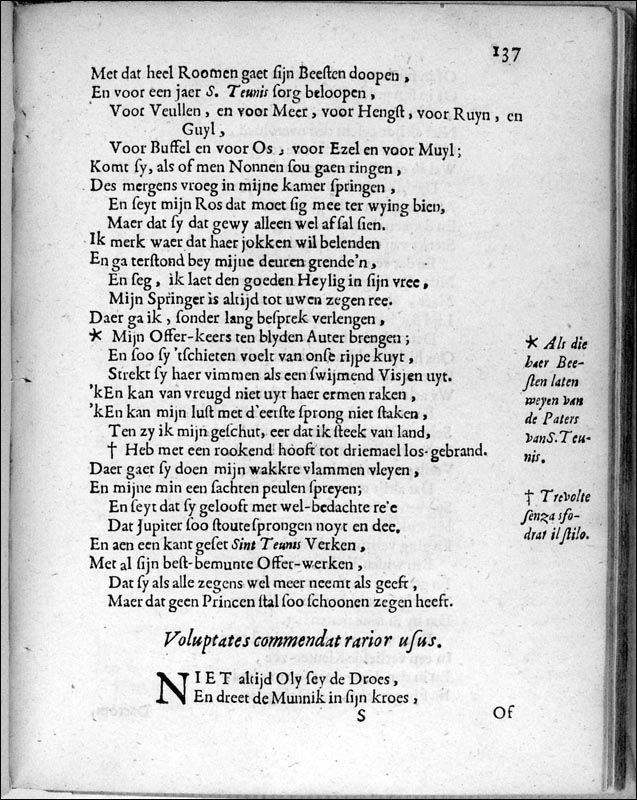 137
Met dat heel Roomen gaet sijn Beesten doopen,
En voor een jaer S. Teunis sorg beloopen,
Voor Veullen, en voor Meer, voor Hengst, voor Ruyn, en
Guyl,
Voor Buffel en voor Os, voor Ezel en voor Muyl;
Komt sy, als of men Nonnen sou gaen ringen,
Des mergens vroeg in mijne kamer springen,
En seyt mijn Ros dat moet sig mee ter wying bien,
Maer dat sy dat gewy alleen wel af sal sien.
Ik merk waer dat haer jokken wil belenden
En ga terstond bey mijne deuren grende'n,
En seg, ik laet den goeden Heylig in sijn vree,
Mijn Springer is altijd tot uwen zegen ree.
Daer ga ik, sonder lang besprek verlengen,
* Mijn Offer-keers ten blyden Auter brengen;
En soo sy 'tschieten voelt van onse rijpe kuyt,
Strekt sy haer vimmen als een swijmend Visjen uyt.
'kEn kan van vreugd niet uyt haer ermen raken,
'kEn kan mijn lust met d'eerste sprong niet staken,
Ten zy ik mijn geschut, eer dat ik steek van land,
† Heb met een rookend hooft tot driemael los-gebrand.
Daer gaet sy doen mijn wakkre vlammen vleyen,
En mijne min een sachten peulen spreyen;
En seyt dat sy gelooft met wel-bedachte re'e
Dat Jupiter soo stoute sprongen noyt en dee.
En aen een kant geset Sint Teunis Verken,
Met al sijn best-bemunte Offer-werken,
Dat sy als alle zegens wel meer neemt als geeft,
Maer dat geen Princen stal soo schoonen zegen heeft.
* Als die
haer Bee-
sten laten
weyen van
de Paters
vanS. Teu-
nis.
† Trevolte
senza sfo-
drar il stilo.
Voluptates commendat rarior usus.
NIET altijd Oly sey de Droes,
En dreet de Munnik in sijn kroes,
S
Of